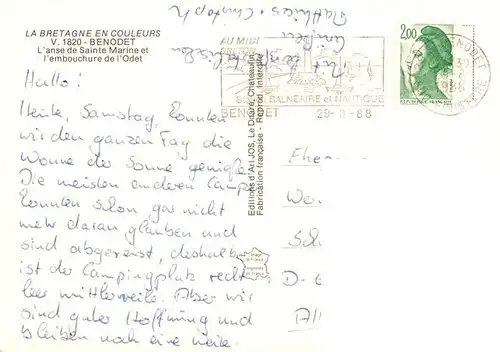 LA BRETAGNE EN COULEURS
V. 1820 - BENODET
L'anse de Sainte Marine et
l'embouchure de l'Odet
Hallo!
Heute, Samstag, konnten
wir den ganzen Tag die
Wonne der Sonne genießen
Die meisten anderen Camper
konnten schon gar nicht
mehr daran glauben und
sind abgereist, deshalb
ist der Campingplatz recht
leer mittlerweile. Aber wir
sind guter Hoffnung und
bleiben noch eine Weile.
Matthias + Christoph
AU MIDI
BRETON
BALNÉAIRE et NAUTIQUE
BENODET 29-8-88
2,00
BENODET
Editions d'Art JOS, Le Doaré, Châteaulin
Fabrication française - Reprod. interdite
D-6